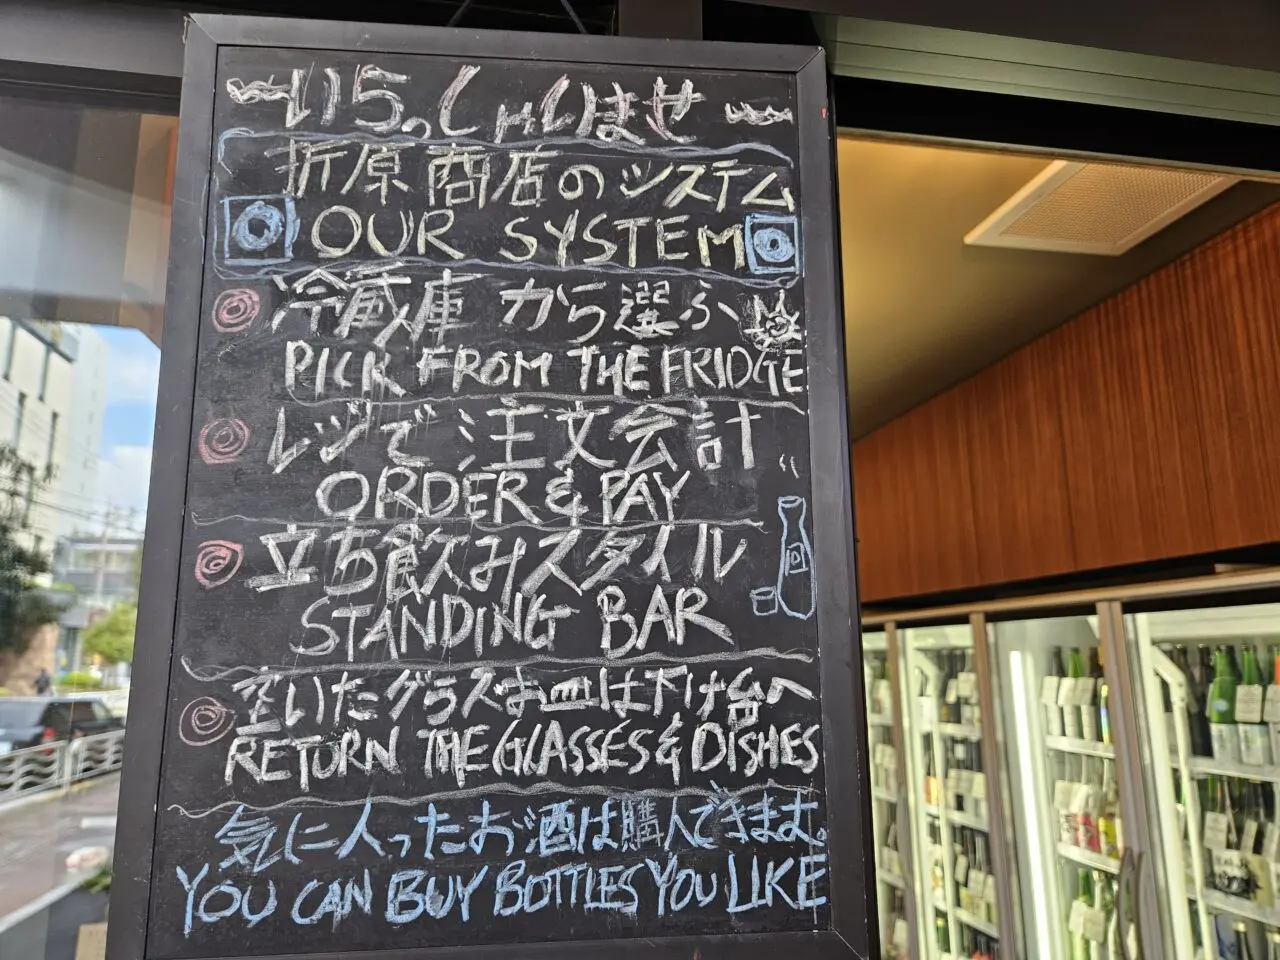 いらっしゃいませ
折原商店のシステム
OUR SYSTEM
冷蔵庫から選ぶ
PICK FROM THE FRIDGE
レジで注文会計
ORDER & PAY
立ち飲みスタイル
STANDING BAR
空いたグラスお皿は下げ台へ
RETURN THE GLASSES & DISHES
気に入ったお酒は購入できます。
YOU CAN BUY BOTTLES YOU LIKE